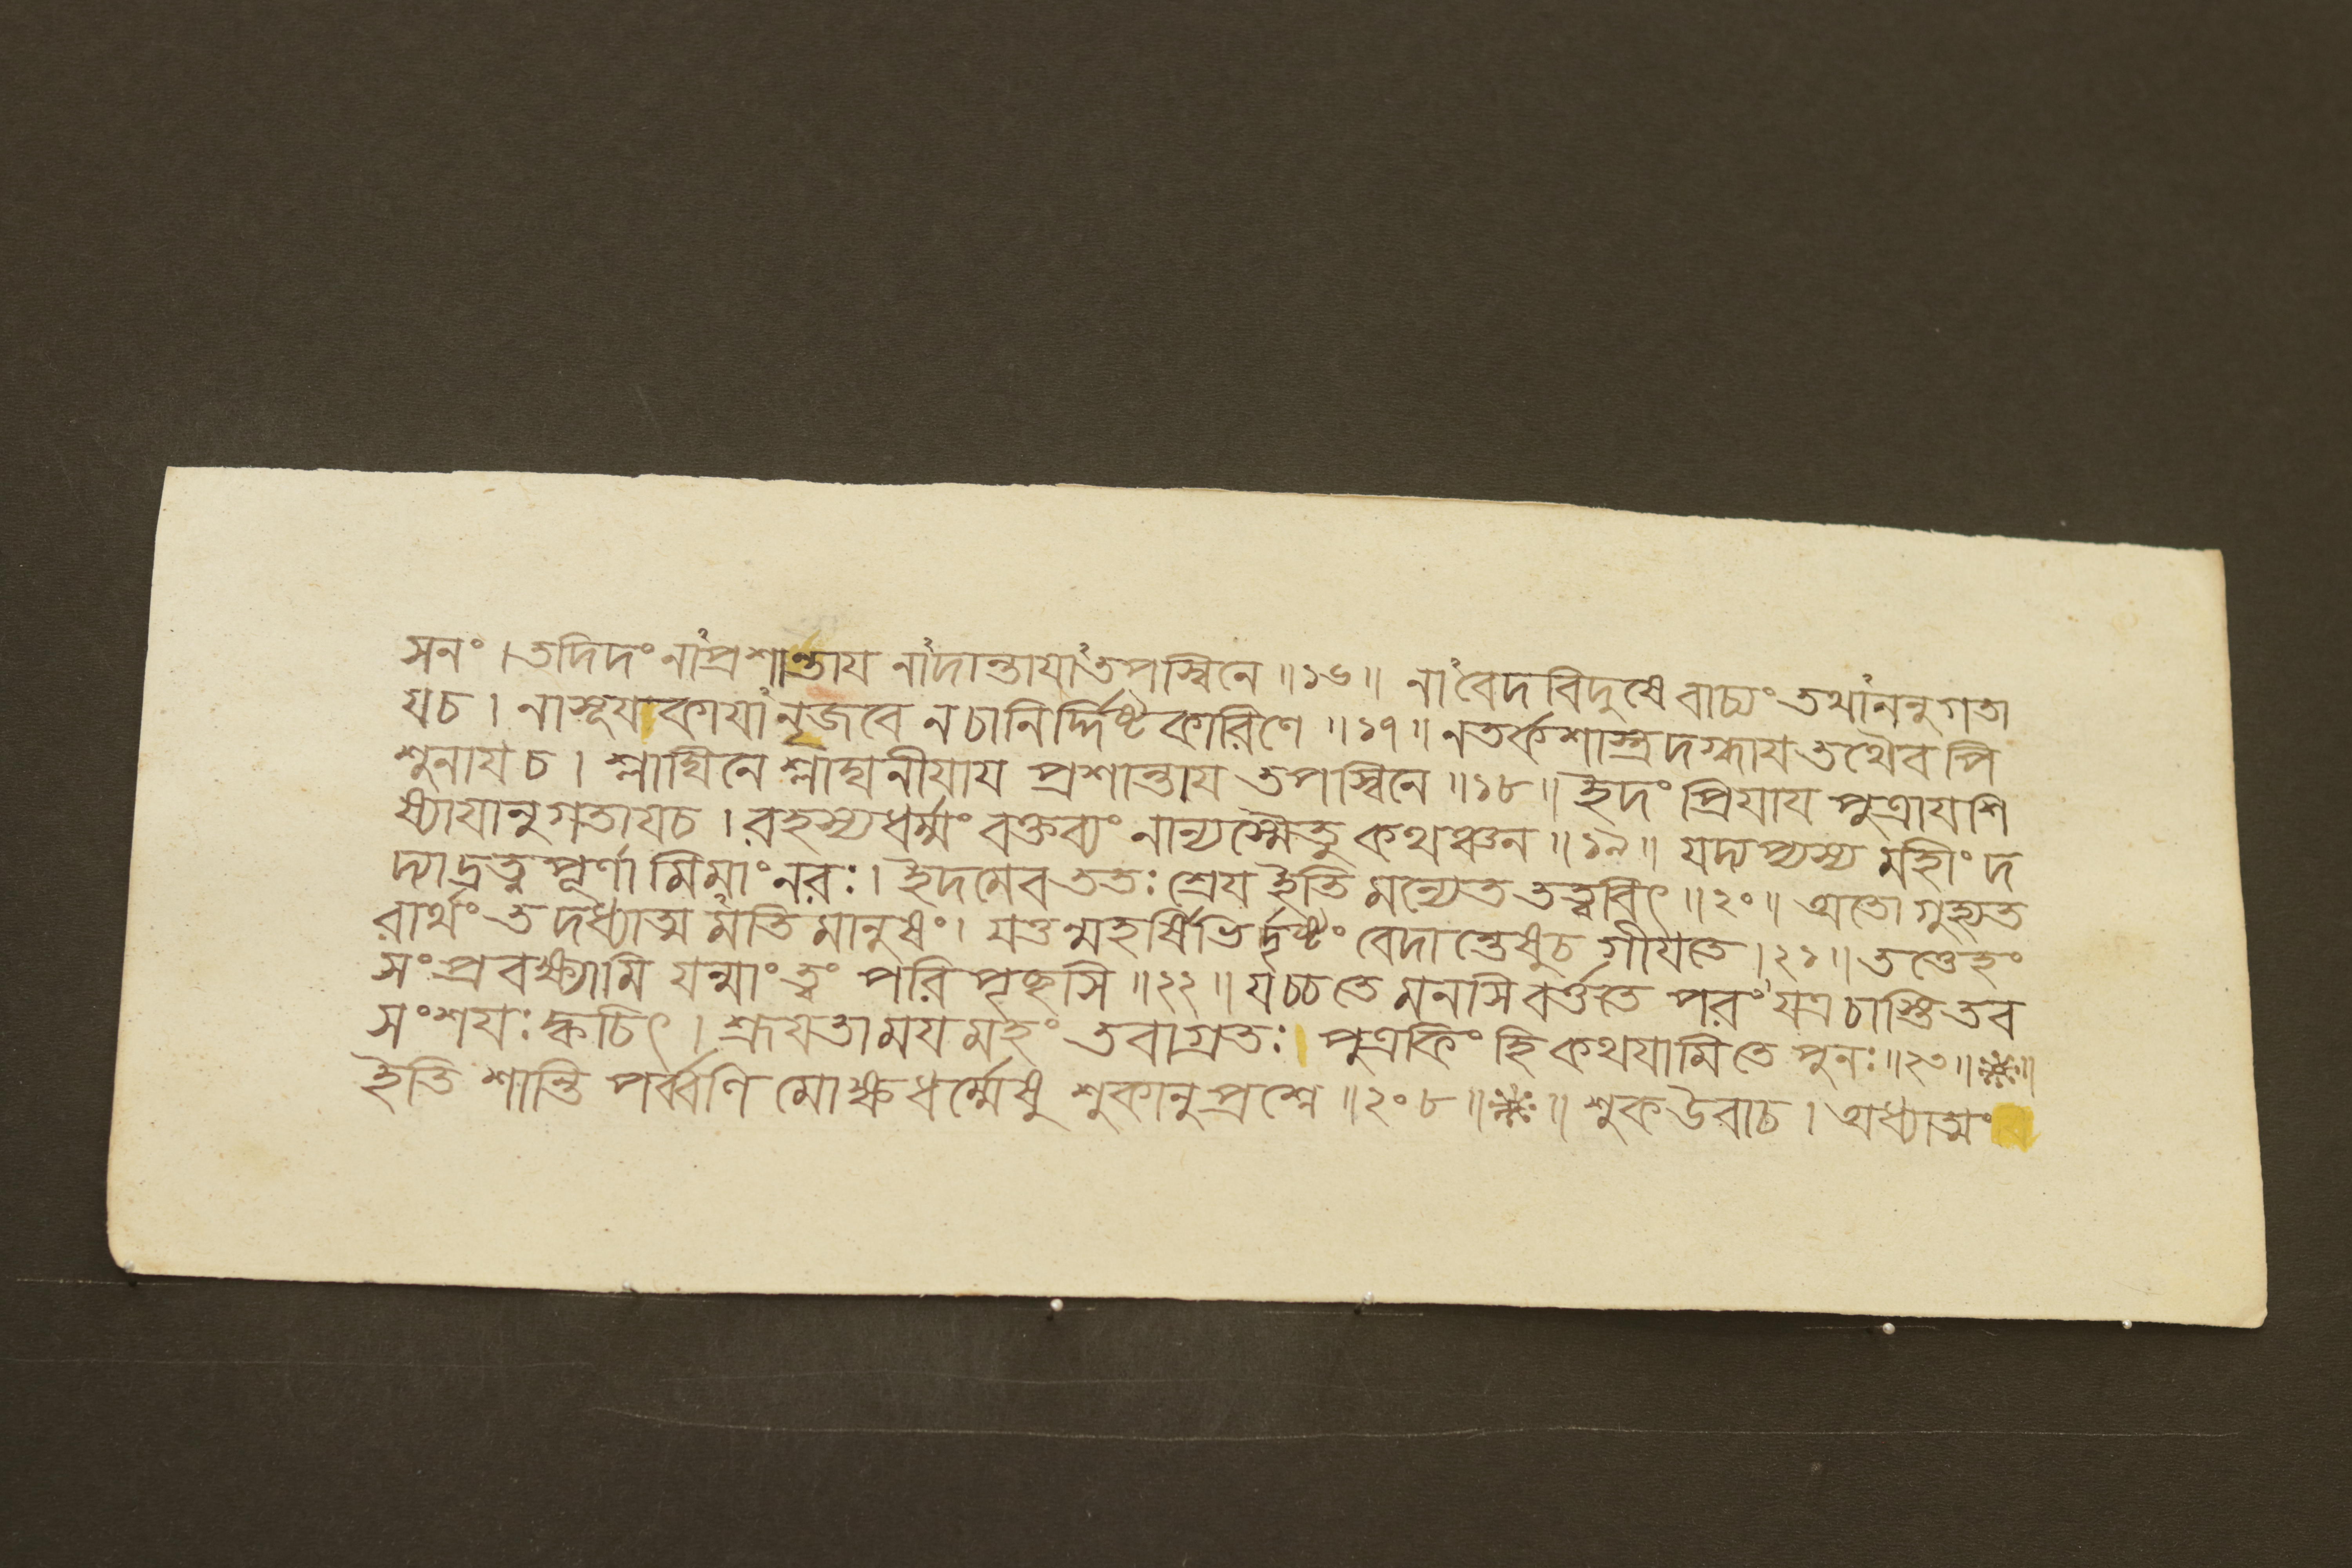 সনং । তদিদং নাꣳপ্রশান্তায নাꣳদান্তাযাꣳতপস্বিনে ॥১৬॥ নাꣳবেদবিদুষে বাচ্যং তথাꣳননুগতা
যচ । নাসূযাকাযাꣳনৃজবে নচানির্দ্দিষ্টকারিণে ॥১৭॥ নতর্কশাস্ত্রদগ্ধায তথৈব পি
শুনায চ । শ্লাঘিনে শ্লাঘনীযায প্রশান্তায তপস্বিনে ॥১৮॥ ইদং প্রিযায পুত্রাযশি
ষ্যাযানুগতাযচ । রহস্যধর্ম্মং বক্তব্যং নান্যস্মৈতু কথঞ্চন ॥১৯॥ যদ্যপ্যস্য মহীং দ
দ্যাদ্রত্নপূর্ণামিমাং নরঃ । ইদমেব ততঃ শ্রেয ইতি মন্যেত তত্ত্ববিৎ ॥২০॥ অতো গুহ্যত
রার্থং তদধ্যাত্মমতিমানুষং । যত্তন্মহর্ষিভির্দৃষ্টং বেদান্তেষুচ গীযতে ।২১॥ তত্তেহং
সংপ্রবক্ষ্যামি যন্মাং ত্বং পরিপৃচ্ছসি ॥২২॥ যচ্চতে মনসি বর্ত্ততে পরং যত্রচাস্তি তব
সংশযঃ ক্বচিৎ । শ্রূযতামযমহং তবাগ্রতঃ । পুত্রকিং হি কথযামিতে পুনঃ ॥২৩॥ ※॥
ইতি শান্তি পর্ব্বণি মোক্ষধর্ম্মেষু শুকানুপ্রশ্নে ॥২০৮॥※॥ শুকউবাচ । অধ্যাত্মং